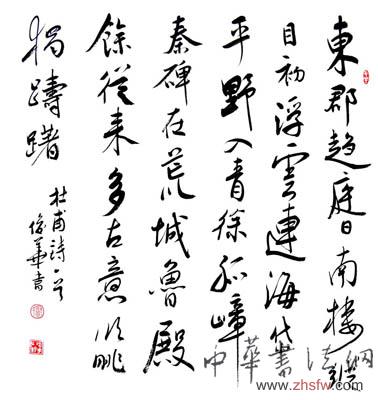 東郡趨庭日南樓縱
目初浮雲連海岱
平野入青徐孤嶂
秦碑在荒城魯殿
餘從來多古意臨眺
獨躊躇
杜甫詩一首
俊華書
中華書法網
www.zhsfw.com